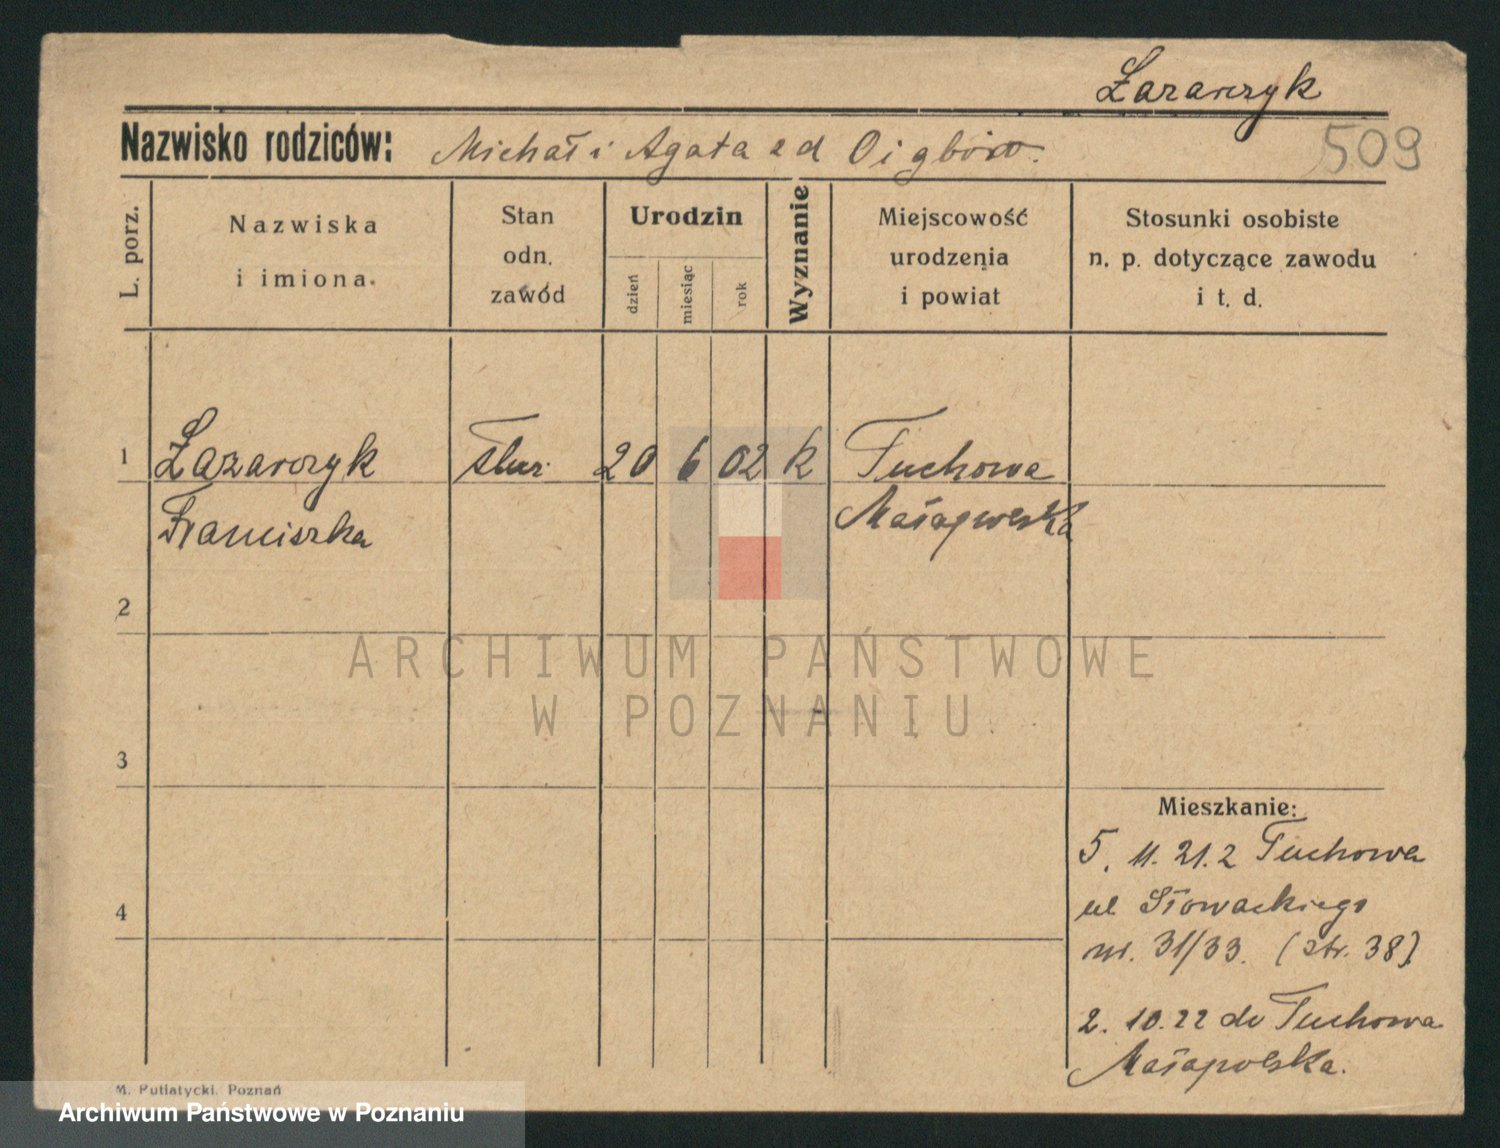 Łazarczyk
509
Nazwisko rodziców: Michał i Agata z d
L. porz.
Nazwiska i imiona.
Stan odn. zawód
Urodzin
dzień
miesiąc
rok
Wyznanie
Miejscowość urodzenia i powiat
Stosunki osobiste n. p. dotyczące zawodu i t. d.
1 Łazarczyk służ. 20 6 02 k Tuchowa
Franciszka Małapolska
2
3
4
Mieszkanie:
5. 11. 21. z Tuchowa
ul Słowackiego
nr. 31/33. (str. 38)
2. 10. 22 do Tuchowa
Małapolska.
M. Putiatycki, Poznań
ARCHIWUM PAŃSTWOWE
W POZNANIU
Archiwum Państwowe w Poznaniu